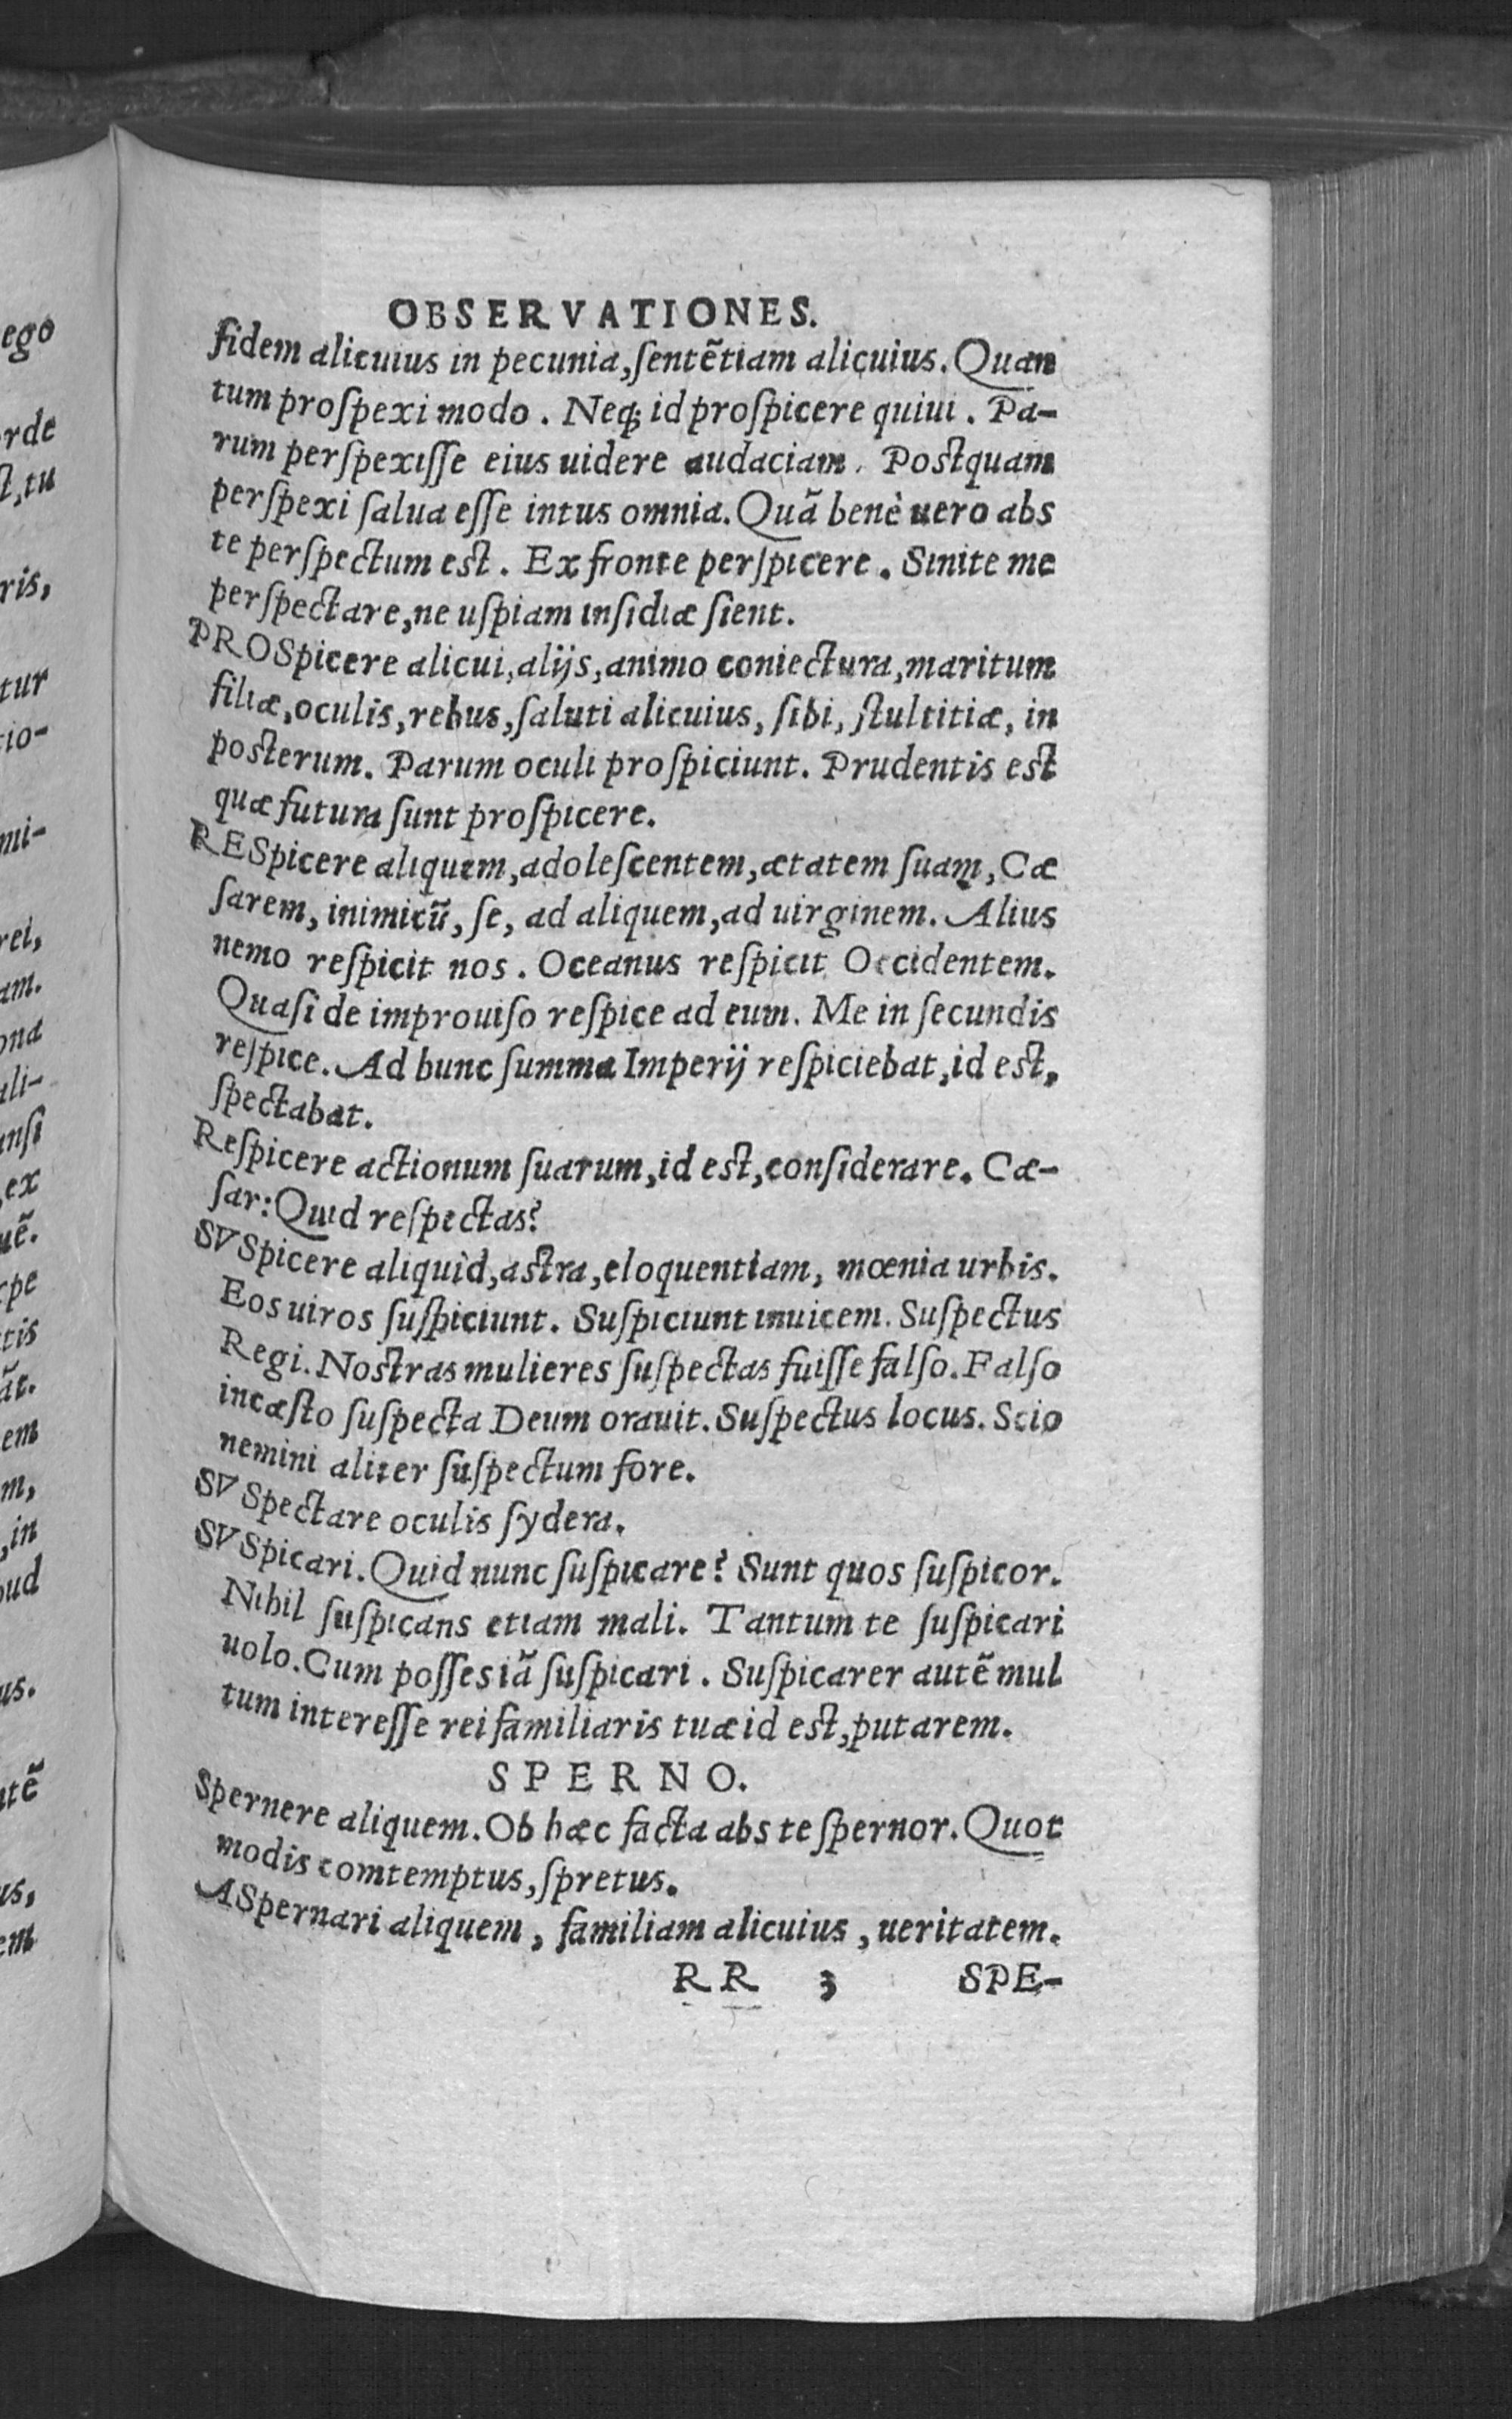 OBSERVATIONES.
fidem alicuius in pecunia, ſentẽtiam alicuius. Quan
tum proſpexi modo. Neq; id proſpicere quiui. Pa-
rum perſpexiſſe eius uidere audaciam. Postquam
perſpexi ſalua eſſe intus omnia. Quã benè uero abs
te perſpectum est. Ex fronte perſpicere. Sinite me
perſpectare, ne uſpiam inſidiæ ſient.
PROSpicere alicui, alijs, animo coniectura, maritum
filiæ, oculis, rebus, ſaluti alicuius, ſibi, ſtultitiæ, in
posterum. Parum oculi proſpiciunt. Prudentis est
quæ futura ſunt proſpicere.
RESpicere aliquem, adoleſcentem, ætatem ſuam, Cæ
ſarem, inimicũ, ſe, ad aliquem, ad uirginem. Alius
nemo reſpicit nos. Oceanus reſpicit Occidentem.
Quaſi de improuiſo reſpice ad eum. Me in ſecundis
reſpice. Ad hunc ſumma Imperij reſpiciebat, id est,
ſpectabat.
Reſpicere actionum ſuarum, id est, conſiderare. Cæ-
ſar: Quid reſpectas?
SVSpicere aliquid, astra, eloquentiam, mœnia urbis.
Eos uiros ſuſpiciunt. Suſpiciunt inuicem. Suſpectus
Regi. Nostras mulieres ſuſpectas fuiſſe falſo. Falſo
incæſto ſuſpecta Deum orauit. Suſpectus locus. Scio
nemini aliter ſuſpectum fore.
SVSpectare oculis ſydera.
SVSpicari. Quid nunc ſuſpicare? Sunt quos ſuſpicor.
Nihil ſuſpicans etiam mali. Tantum te ſuſpicari
uolo. Cum poſſes iã ſuſpicari. Suſpicarer autẽ mul
tum intereſſe rei familiaris tuæ id est, putarem.
SPERNO.
Spernere aliquem. Ob hæc facta abs te ſpernor. Quot
modis comtemptus, ſpretus.
ASpernari aliquem, familiam alicuius, ueritatem.
RR 3 SPE-